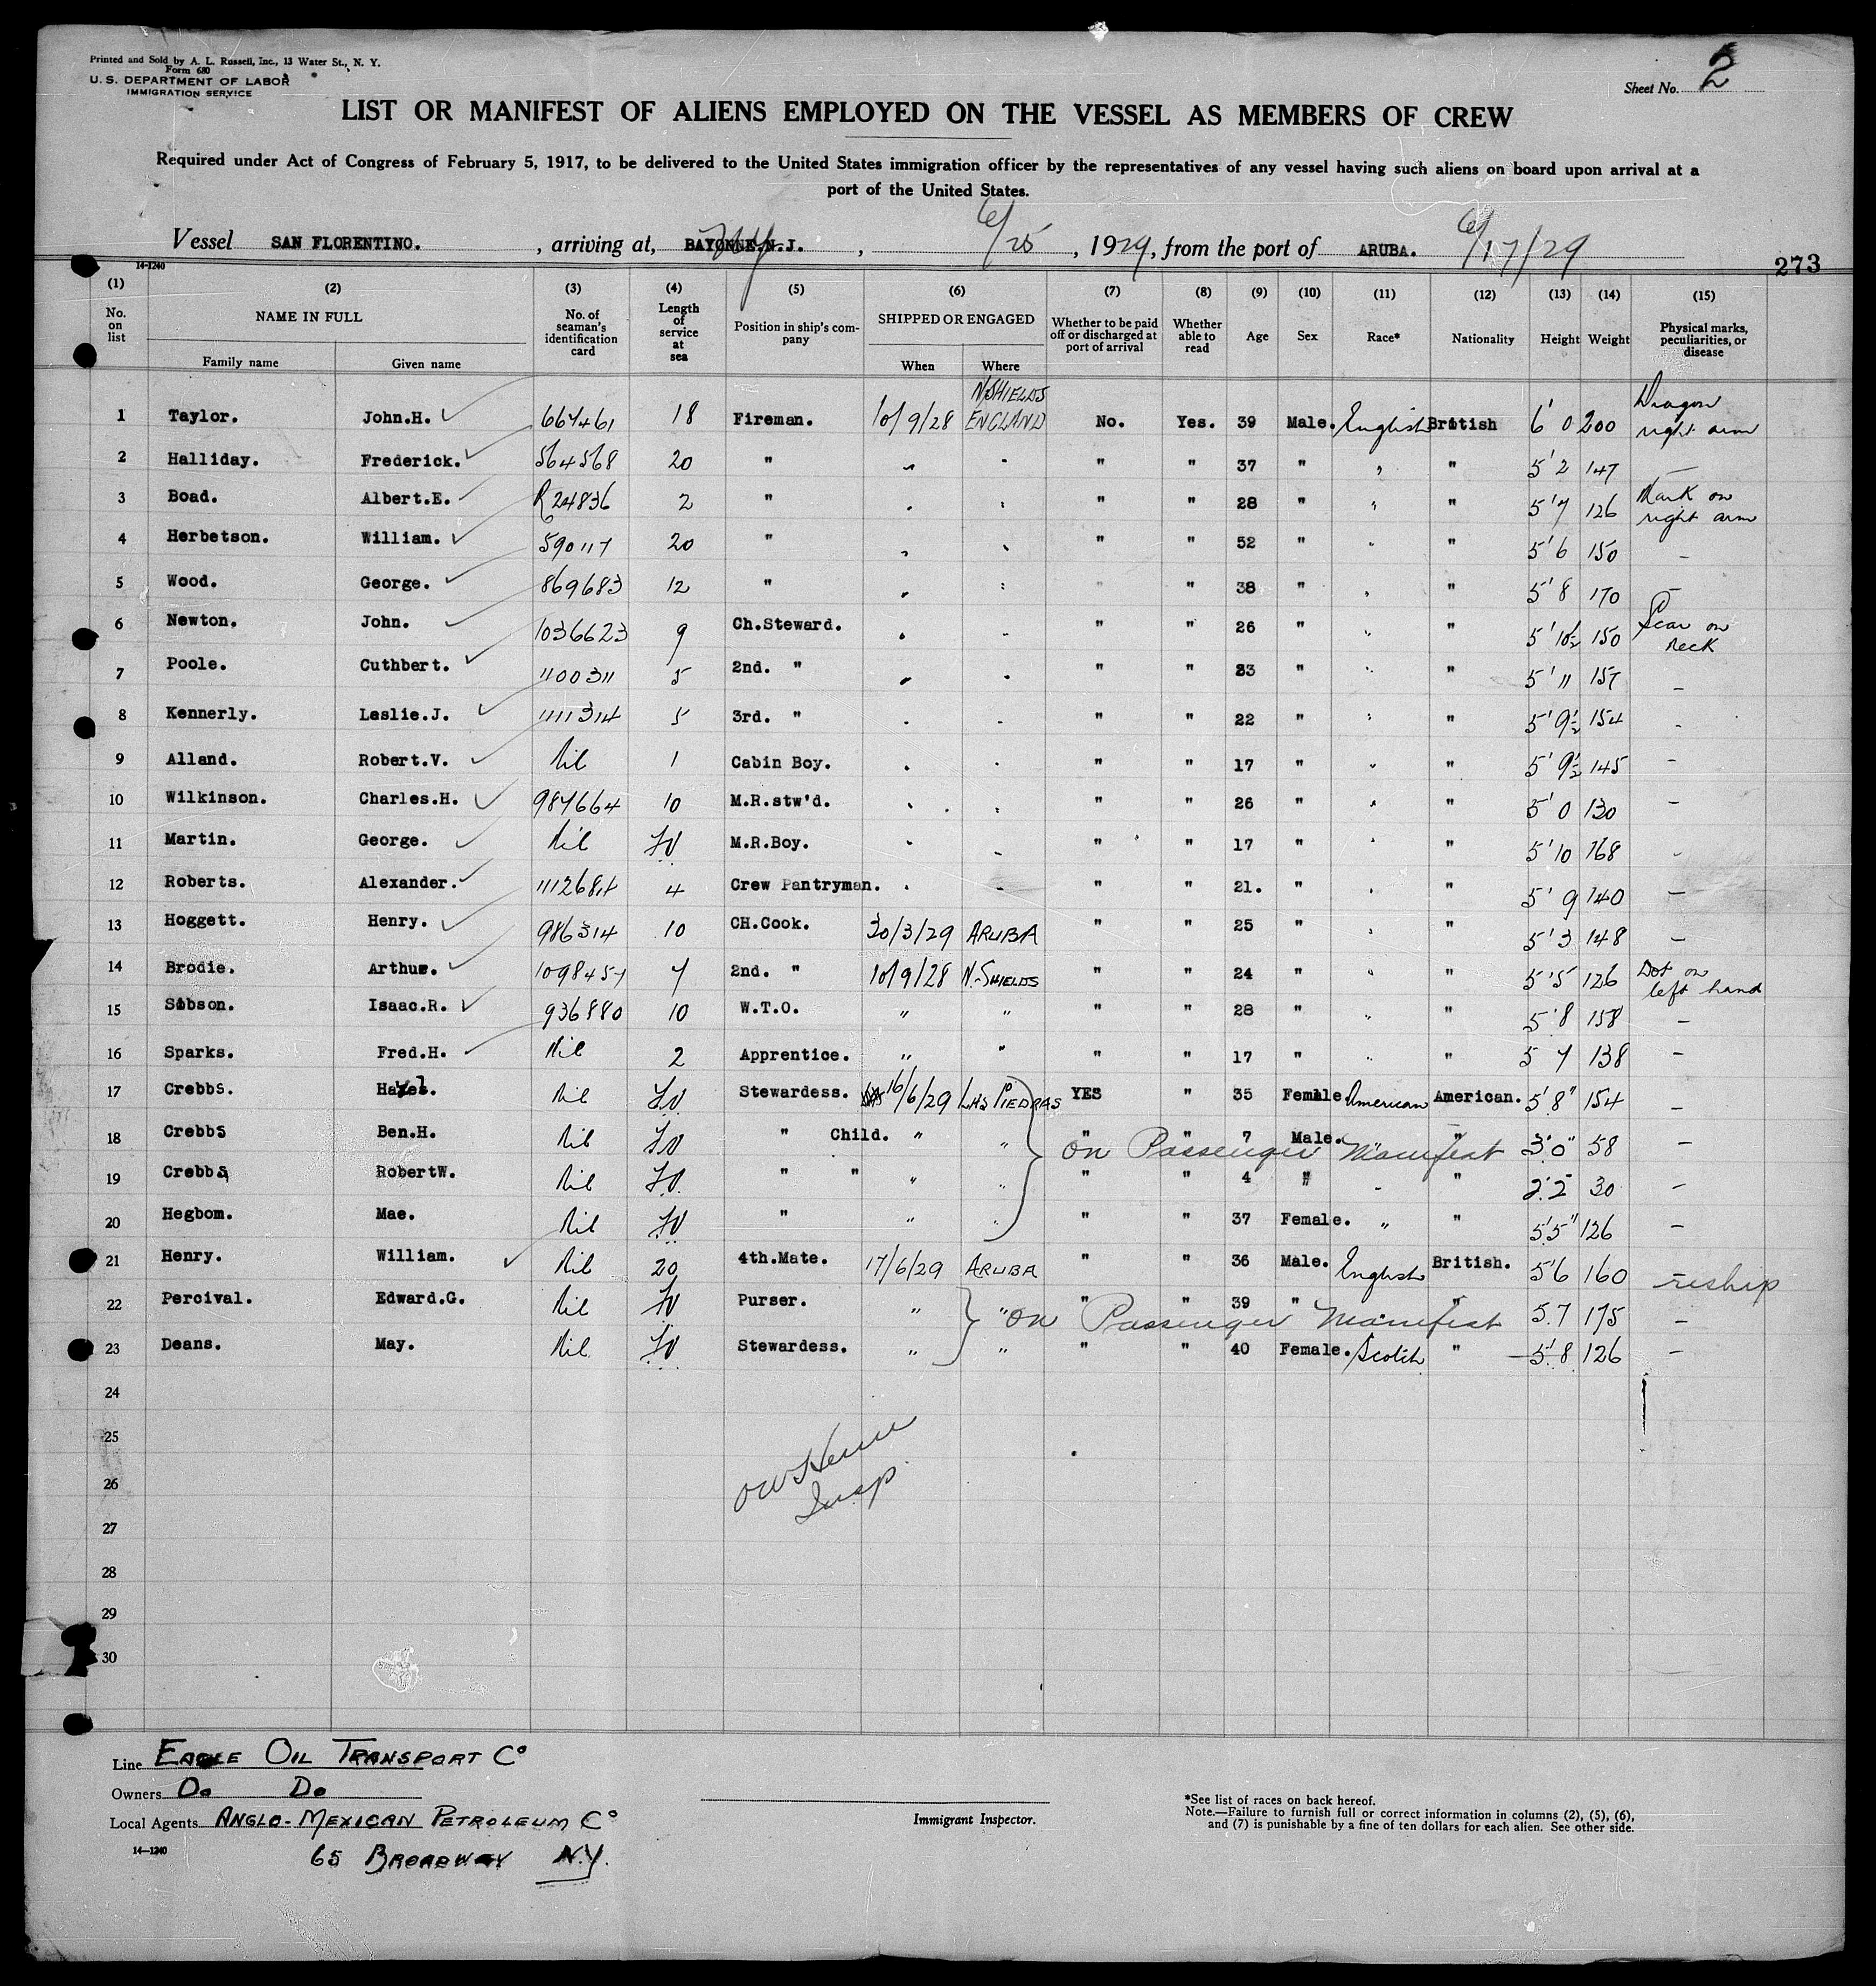 Printed and Sold by A. L. Russell, Inc., 13 Water St., N. Y.
Form 680
U. S. DEPARTMENT OF LABOR
IMMIGRATION SERVICE
Sheet No. 2
LIST OR MANIFEST OF ALIENS EMPLOYED ON THE VESSEL AS MEMBERS OF CREW
Required under Act of Congress of February 5, 1917, to be delivered to the United States immigration officer by the representatives of any vessel having such aliens on board upon arrival at a
port of the United States.
Vessel SAN FLORENTINO. , arriving at, BAYONNE.N.J. , 6/25 , 1929, from the port of ARUBA. 6/17/29
14-1240
273
(1) (2) (3) (4) (5) (6) (7) (8) (9) (10) (11) (12) (13) (14) (15)
No. on list NAME IN FULL Family name Given name No. of seaman's identification card Length of service at sea Position in ship's company SHIPPED OR ENGAGED When Where Whether to be paid off or discharged at port of arrival Whether able to read Age Sex Race* Nationality Height Weight Physical marks, peculiarities, or disease
1 Taylor. John.H. 667461 18 Fireman. 10/9/28 N.SHIELDS ENGLAND No. Yes. 39 Male. English British 6'0 200 Dragon right arm
2 Halliday. Frederick. 564568 20 " " " " " 37 " " " 5'2 147 –
3 Boad. Albert.E. R24836 2 " " " " " 28 " " " 5'7 126 Mark on right arm
4 Herbetson. William. 590117 20 " " " " " 52 " " " 5'6 150 –
5 Wood. George. 869683 12 " " " " " 38 " " " 5'8 170 –
6 Newton. John. 1036623 9 Ch.Steward. " " " " 26 " " " 5'10½ 150 Scar on neck
7 Poole. Cuthbert. 1100311 5 2nd. " " " " " 23 " " " 5'11 157 –
8 Kennerly. Leslie.J. 1111314 5 3rd. " " " " " 22 " " " 5'9½ 154 –
9 Alland. Robert.V. Nil 1 Cabin Boy. " " " " 17 " " " 5'9½ 145 –
10 Wilkinson. Charles.H. 987664 10 M.R.stw'd. " " " " 26 " " " 5'0 130 –
11 Martin. George. Nil M.R.Boy. " " " " 17 " " " 5'10 168 –
12 Roberts. Alexander. 1112684 4 Crew Pantryman. " " " " 21. " " " 5'9 140 –
13 Hoggett. Henry. 986314 10 CH.Cook. 30/3/29 ARUBA " " 25 " " " 5'3 148 –
14 Brodie. Arthur. 1098457 7 2nd. " 10/9/28 N.SHIELDS " " 24 " " " 5'5 126 Dot on left hand
15 Sobson. Isaac.R. 936880 10 W.T.O. " " " " 28 " " " 5'8 158 –
16 Sparks. Fred.H. Nil 2 Apprentice. " " " " 17 " " " 5 7 138 –
17 Crebbs. Hazel. Nil Stewardess. 16/6/29 LAS PIEDRAS YES " 35 Female American American. 5'8" 154 –
18 Crebbs Ben.H. Nil " Child. " " " " 7 Male. " " 3'0" 58 –
On Passenger Manifest
19 Crebbs RobertW. Nil " " " " " " 4 " " " 2'2" 30 –
20 Hegbom. Mae. Nil " " " " " 37 Female. " " 5'5" 126 –
21 Henry. William. Nil 20 4th.Mate. 17/6/29 ARUBA " " 36 Male. English British. 5'6 160 – reship
22 Percival. Edward.G. Nil Purser. " " " " 39 " " 5.7 175 –
On Passenger Manifest
23 Deans. May. Nil Stewardess. " " " " 40 Female. Scotch " 5'8 126 –
24
25
26
27
28
29
30
Insp.
Line EAGLE OIL TRANSPORT Co
Owners Do Do
Local Agents ANGLO-MEXICAN PETROLEUM Co
65 BROADWAY N.Y.
14—1240
Immigrant Inspector.
*See list of races on back hereof.
Note.—Failure to furnish full or correct information in columns (2), (5), (6),
and (7) is punishable by a fine of ten dollars for each alien. See other side.